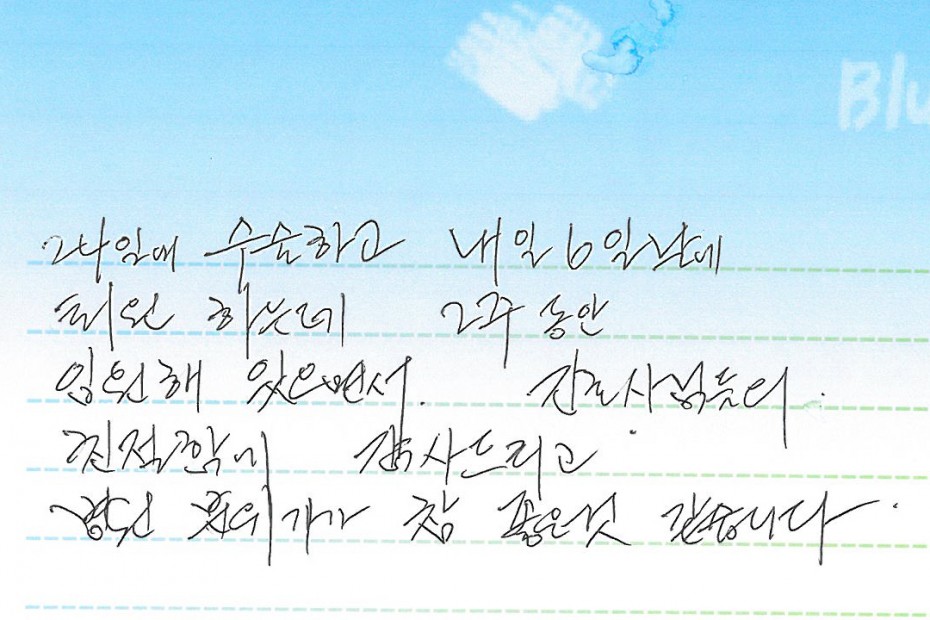 Blu
24일에 수술하고 내일 6일날에
퇴원 하는데 2주 동안
입원해 있으면서. 간호사님들의
친절함에 감사드리고
병원 분위기가 참 좋은것 같습니다.